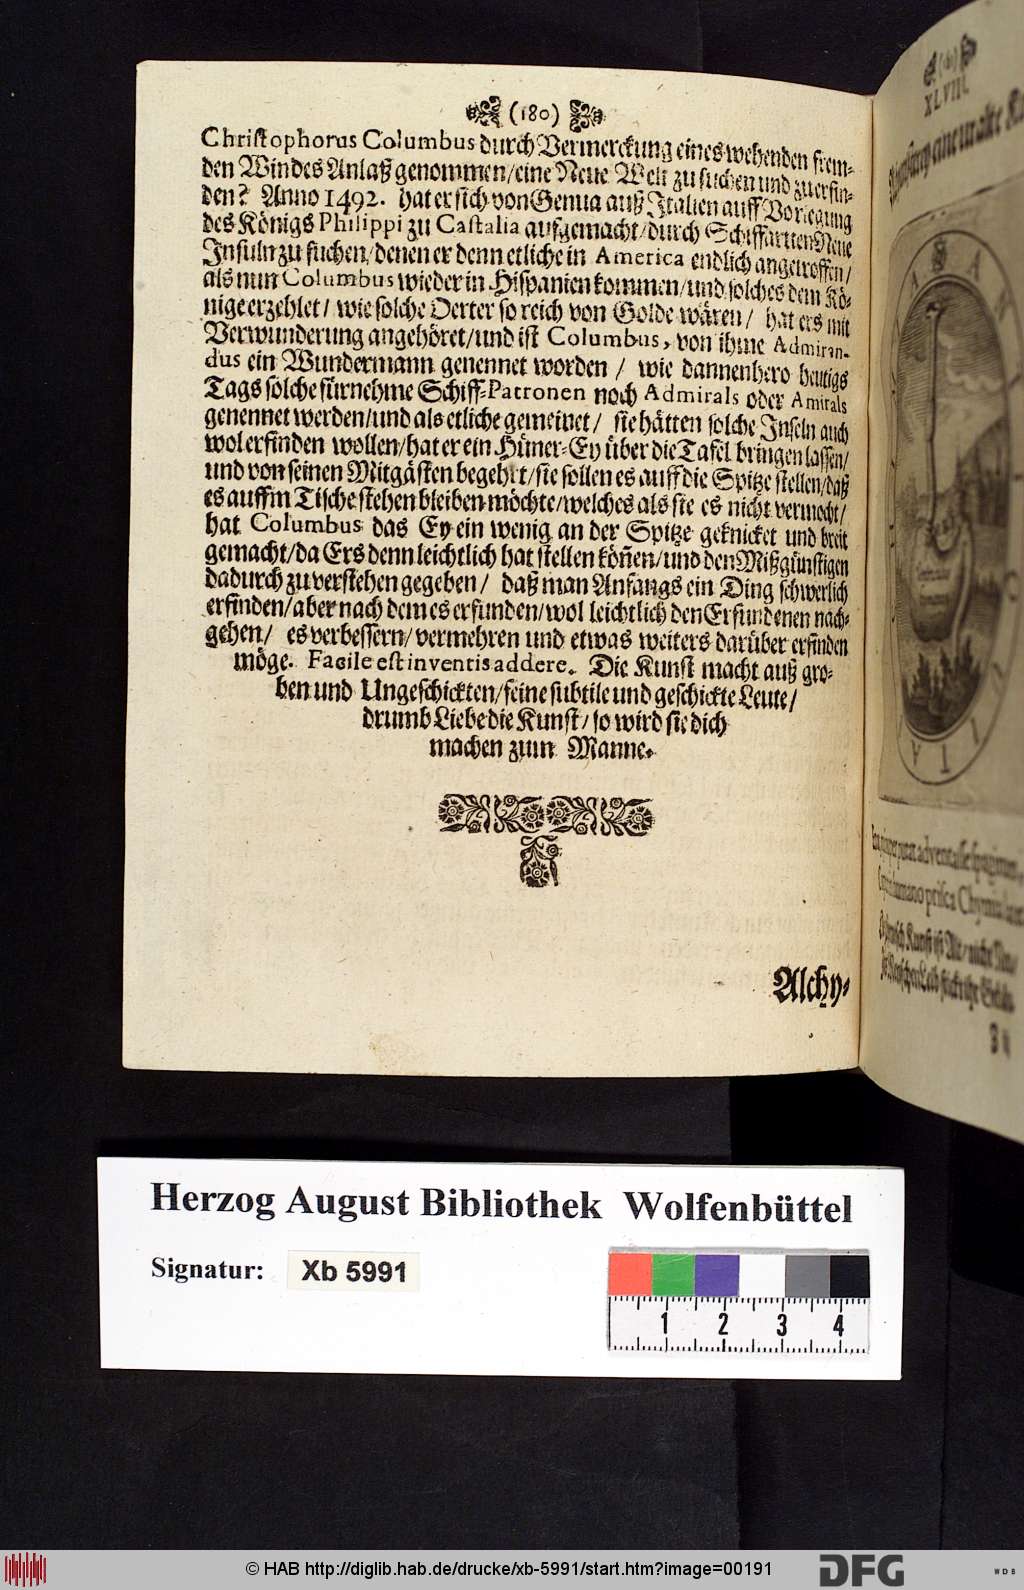 (180)
Christophorus Columbus durch Vermerckung eines wehenden frem-
den Windes Anlaß genommen/ eine Neue Welt zu suchen und zu erfin-
den? Anno 1492. hat er sich von Genua auß Italien auff Vorlegung
des Königs Philippi zu Castalia aufgemacht/ durch Schiffarten Neue
Insuln zu suchen/ denen er denn etliche in America endlich angetroffen/
als nun Columbus wieder in Hispanien kommen/ und solches dem Kö-
nige erzehlet/ wie solche Oerter so reich von Golde wären/ hat ers mit
Verwunderung angehöret/ und ist Columbus, von ihme Admiran-
dus ein Wundermann genennet worden/ wie dannenhero heutigs
Tags solche fürnehme Schiff-Patronen noch Admirals oder Amirals
genennet werden/ und als etliche gemeinet/ sie hätten solche Inseln auch
wol erfinden wollen/ hat er ein Hüner-Ey über die Tafel bringen lassen/
und von seinen Mitgästen begehrt/ sie sollen es auff die Spitze stellen/ daß
es auffm Tische stehen bleiben möchte/ welches als sie es nicht vermocht/
hat Columbus das Ey ein wenig an der Spitze geknicket und breit
gemacht/ da Ers denn leichtlich hat stellen köñen/ und den Mißgünstigen
dadurch zu verstehen gegeben/ daß man Anfangs ein Ding schwerlich
erfinden/ aber nach dem es erfunden/ wol leichtlich den Erfundenen nach-
gehen/ es verbessern/ vermehren und etwas weiters darüber erfinden
möge. Facile est inventis addere. Die Kunst macht auß gro-
ben und Ungeschickten/ feine subtile und geschickte Leute/
drumb Liebe die Kunst/ so wird sie dich
machen zum Manne.
Alchy-
XLVIII.
Kunst ist Alt/ nicht Neu/
Herzog August Bibliothek Wolfenbüttel
Signatur: Xb 5991
1 2 3 4
© HAB http://diglib.hab.de/drucke/xb-5991/start.htm?image=00191
DFG
WDB